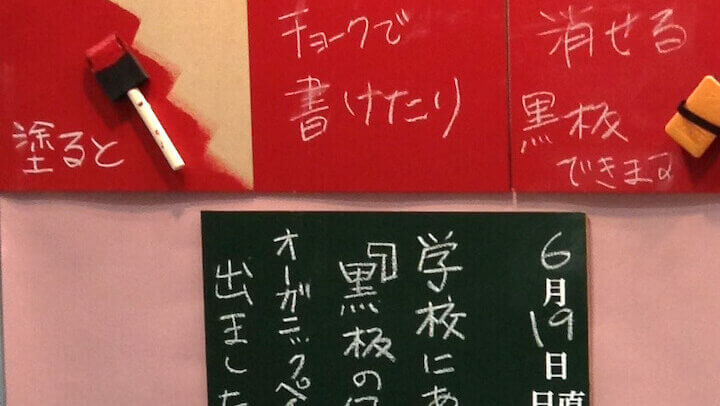 塗ると
チョークで
書けたり
消せる
黒板
できます
6月19日
日直
学校にあ
『黒板の
オーガニックペ
出ました